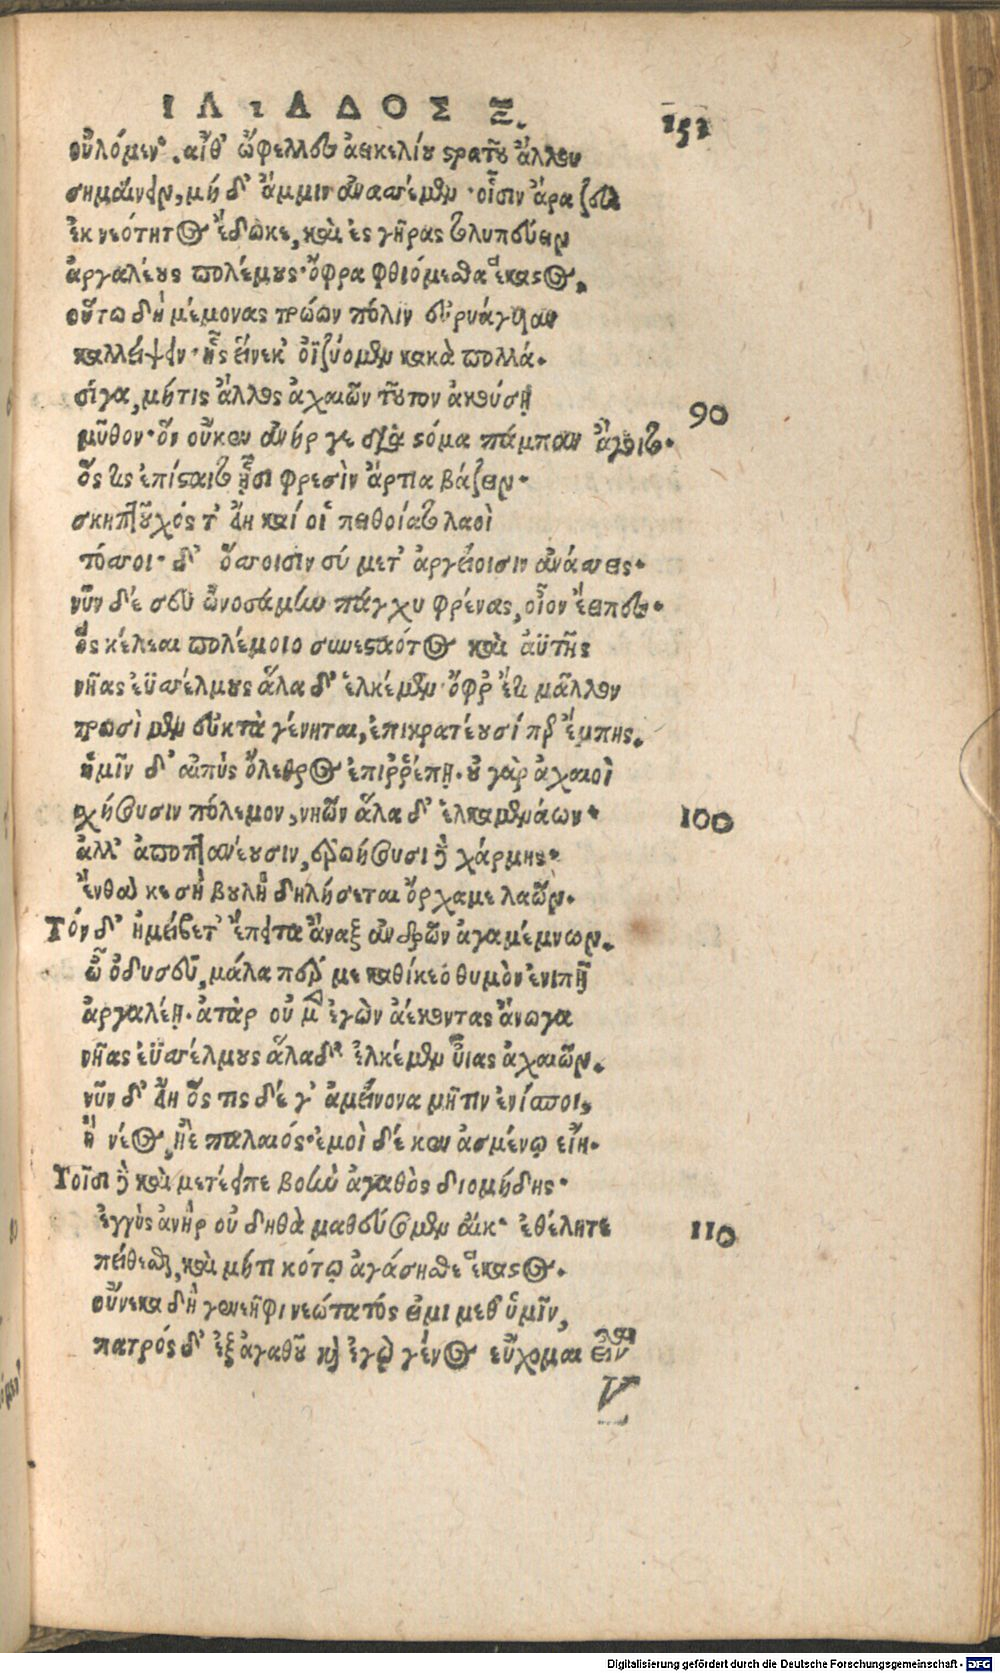 ΙΛΙΑΔΟΣ Ξ. 151
οὐλόμεν'. αἴθ' ὤφελλες ἀεικελίου στρατοῦ ἄλλου
σημαίνειν, μὴ δ' ἄμμιν ἀνασσέμεν· οἷσιν ἄρα ζεὺς
ἐκ νεότητος ἔδωκε, καὶ ἐς γῆρας τολυπεύειν
ἀργαλέους πολέμους· ὄφρα φθιόμεσθα ἕκαστος.
οὕτω δὴ μέμονας τρώων πόλιν εὐρυάγυιαν
καλλείψειν· ἧς εἵνεκ' ὀϊζύομεν κακὰ πολλά.
σίγα, μήτις ἄλλος ἀχαιῶν τοῦτον ἀκούσῃ
μῦθον· ὃν οὔκεν ἀνήρ γε διὰ στόμα πάμπαν ἄγοιτο. 90
ὅς τις ἐπίσταιτο ᾗσι φρεσὶν ἄρτια βάζειν.
σκηπτοῦχός τ' εἴη καί οἱ πειθοίατο λαοὶ
τόσσοι· δ' ὅσσοισιν σύ μετ' ἀργείοισιν ἀνάσσεις.
νῦν δέ σευ ὠνοσάμην πάγχυ φρένας, οἷον ἔειπες.
ὃς κέλεαι πολέμοιο συνεσταότος καὶ ἀϋτῆς
νῆας ἐϋσσέλμους ἅλα δ' ἑλκέμεν· ὄφρ' ἔτι μᾶλλον
τρωσὶ μὲν εὐκτὰ γένηται, ἐπικρατέουσί περ ἔμπης.
ἡμῖν δ' αἰπὺς ὄλεθρος ἐπιῤῥέπῃ. οὐ γὰρ ἀχαιοὶ
σχήσουσιν πόλεμον, νηῶν ἅλα δ' ἑλκομενάων. 100
ἀλλ' ἀποπτανέουσιν, ἐρωήσουσι δὲ χάρμης.
ἔνθα κε σὴ βουλὴ δηλήσεται ὄρχαμε λαῶν.
Τόν δ' ἠμείβετ' ἔπειτα ἄναξ ἀνδρῶν ἀγαμέμνων.
ὦ ὀδυσεῦ, μάλα πώς με καθίκεο θυμὸν ἐνιπῇ
ἀργαλέῃ. ἀτὰρ οὐ μὲν ἐγὼν ἀέκοντας ἄνωγα
νῆας ἐϋσσέλμους ἅλαδ' ἑλκέμεν υἷας ἀχαιῶν.
νῦν δ' εἴη ὅς τις δέ γ' ἀμείνονα μῆτιν ἐνίσποι,
ἢ νέος, ἠὲ παλαιός· ἐμοὶ δέ κεν ἀσμένῳ εἴη.
Τοῖσι δὲ καὶ μετέειπε βοὴν ἀγαθὸς διομήδης.
ἐγγὺς ἀνὴρ οὐ δηθὰ ματεύσομεν αἴκ' ἐθέλητε 110
πείθεσθαι, καὶ μήτι κότῳ ἀγάσησθε ἕκαστος.
οὕνεκα δὴ γενεῆφι νεώτατός εἰμι μεθ' ὑμῖν,
πατρός δ' ἐξ ἀγαθοῦ καὶ ἐγὼ γένος εὔχομαι εἶναι
V
Digitalisierung gefördert durch die Deutsche Forschungsgemeinschaft - DFG